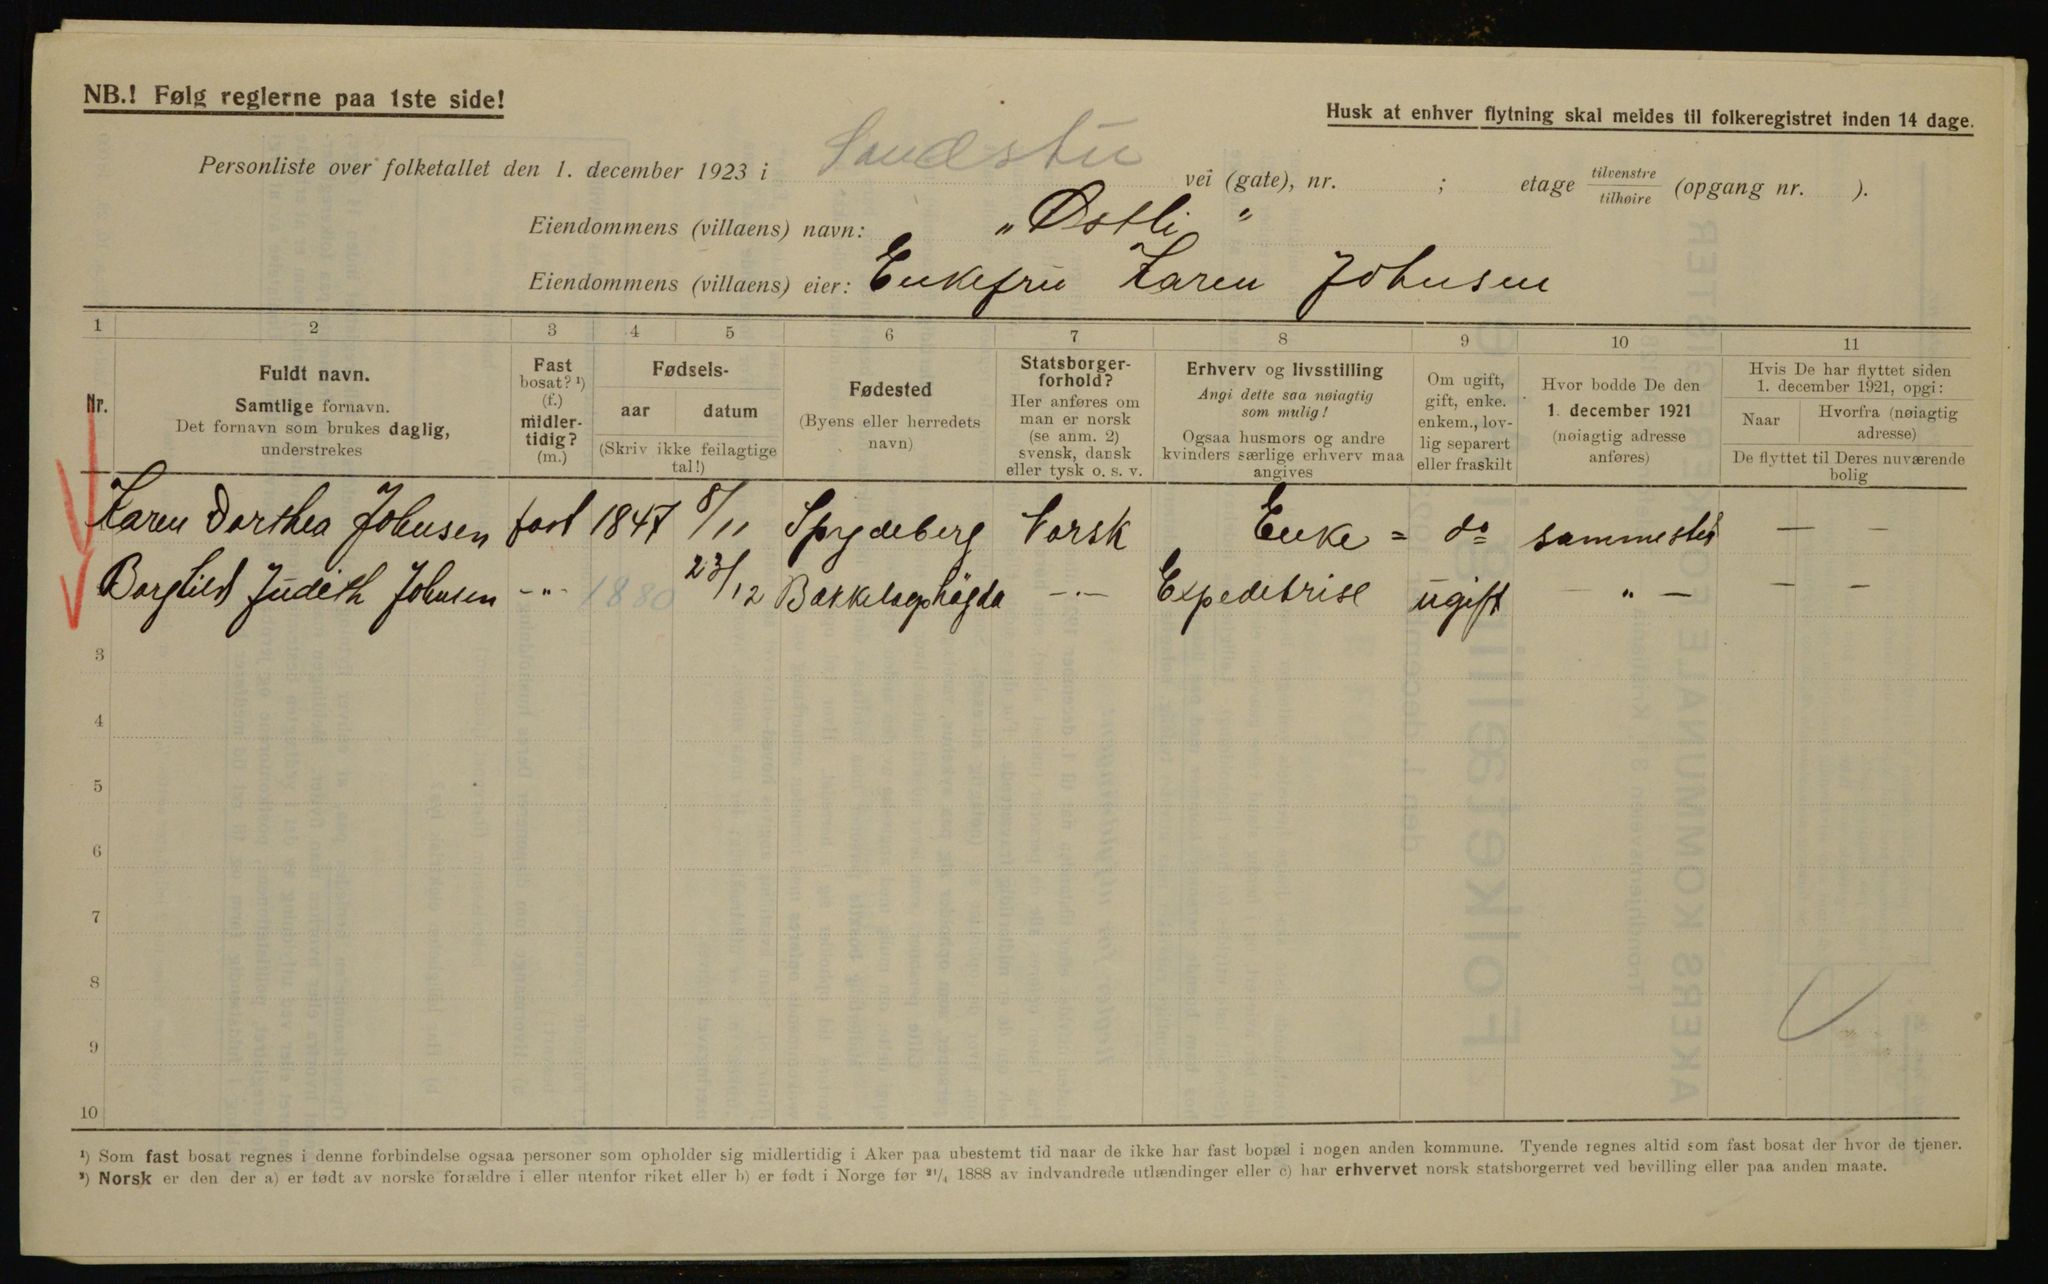 NB.! Følg reglerne paa 1ste side!
Husk at enhver flytning skal meldes til folkeregistret inden 14 dage.
Personliste over folketallet den 1. december 1923 i Sandstu vei (gate), nr. ; etage tilvenstre/tilhøire (opgang nr. ).
Eiendommens (villaens) navn: „Østli“
Eiendommens (villaens) eier: Enkefru Karen Johnsen
1 2 3 4 5 6 7 8 9 10 11
Nr.
Fuldt navn.
Samtlige fornavn.
Det fornavn som brukes daglig,
understrekes
Fast
bosat? ¹)
(f.)
midler-
tidig?
(m.)
Fødsels-
aar datum
(Skriv ikke feilagtige
tal!)
Fødested
(Byens eller herredets
navn)
Statsborger-
forhold?
Her anføres om
man er norsk
(se anm. 2)
svensk, dansk
eller tysk o. s. v.
Erhverv og livsstilling
Angi dette saa nøiagtig
som mulig!
Ogsaa husmors og andre
kvinders særlige erhverv maa
angives
Om ugift,
gift, enke.
enkem., lov-
lig separert
eller fraskilt
Hvor bodde De den
1. december 1921
(nøiagtig adresse
anføres)
Hvis De har flyttet siden
1. december 1921, opgi:
Naar
Hvorfra (nøiagtig
adresse)
De flyttet til Deres nuværende
bolig
Karen Dorthea Johnsen fast 1847 8/11 Spydeberg Norsk Enke = do sammested — —
Borghild Judith Johnsen -„- 1880 23/12 Bækkelagshögda -„- Expeditrise ugift — „ — — —
3
4
5
6
7
8
9
10
¹) Som fast bosat regnes i denne forbindelse ogsaa personer som opholder sig midlertidig i Aker paa ubestemt tid naar de ikke har fast bopæl i nogen anden kommune. Tyende regnes altid som fast bosat der hvor de tjener.
²) Norsk er den der a) er født av norske forældre i eller utenfor riket eller b) er født i Norge før 21/4 1888 av indvandrede utlændinger eller c) har erhvervet norsk statsborgerret ved bevilling eller paa anden maate.